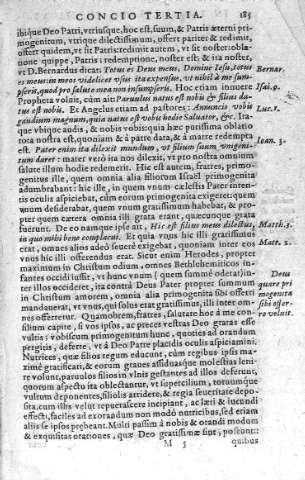 CONCIO TERTIA. 185
ibique Deo Patri, vtriusque, hoc est, suum, & Patris æterni pri-
mogenitum, vtrique dilectissimum, offert pariter & redimit,
offert quidem, vt sit Patris: redimit autem, vt sit noster: obla-
tione quippe, Patris; redemptione, noster est; & ita noster,
vt D. Bernardus dicat: Totus es Deus meus, Domine Iesu, totus
in meos vsus expensus, vt nihil à me sum-
pseris, quod pro salute mea non insumpseris. Hoc erat in ore
Propheta volnit, cùm ait: Paruulus natus est nobis & filius da-
tus est nobis. Et Angelus etiam ad pastores: Annuncio vobis
gaudium magnum, quia natus est vobis hodie Saluator, &c. Ita-
que vbique audis, & nobis vobisque hæc purissima oblatio
tota nostra est, quoniam & à patre data, & à matre redempta
est. Pater enim ita dilexit mundum, vt filium suum vnigeni-
tum daret: mater verò ita nos dilexit, vt pro nostra omnium
salute illum hodie redemerit. Hic est autem, fratres, primo-
genitus ille, quem omnia alia filiorum Israel primogenita
adumbrabant: hic ille, in quem vnum cælestis Pater inten-
tis oculis aspiciebat, cùm eorum primogenita exigeret: quem
vnum desiderabat, quem vnum gratissimum habebat, & pro-
pter quem cætera omnia illi grata erant, quæcunque grata
fuerunt. De eo namque ipse ait, Hic est filius meus dilectus,
in quo mihi bene complacui. Et quia vnus hic illi gratissimus
erat, omnes alios adeò seuerè exigebat, quoniam inter eos
vnus hic illi offerendus erat. Sicut enim Herodes, propter
maximum in Christum odium, omnes Bethlehemiticos in-
fantes occidi iussit, vt hunc vnum (quem summè oderat) in-
ter illos occideret, ita contrà Deus Pater propter summum
in Christum amorem, omnia alia primogenita sibi offerri
mandauerat, vt vnus, qui solus erat gratissimus, illi inter om-
nes offerretur. Quamobrem, fratres, salutare hoc à me con-
silium capite, si vos ipsos, ac preces vestras Deo gratas esse
vultis: vobiscum primogenitum hunc, quoties ad orandum
pergitis, deferte, vt à Deo Patre placidis oculis aspiciamini.
Nutrices, quæ filios regum educunt, cùm regibus ipsis ma-
ximè gratificari, & eorum graues assiduasque molestias leni-
re volunt, paruulos filios in vlnis gestantes ad illos deferunt,
quorum aspectu ita oblectantur, vt supercilium, toruumque
vultum deponentes, filiolis arridere, & regia seueritate depo-
sita, cum illis velut repuerascere incipiant, ac læti & iucundi
effecti, faciles ad exorandum non modò nutricibus, sed etiam
aliis se ipsos præbeant. Multi passim à nobis & orandi modum
& exquisitas orationes, quæ Deo gratissimæ sint, poscunt:
M 5 quibus
Bernar.
Isai. 9.
Luc. 2.
Ioan. 3.
Matth. 3.
Matt. 2.
Deus
quare pri
mogenita
sibi offer-
ri voluit.